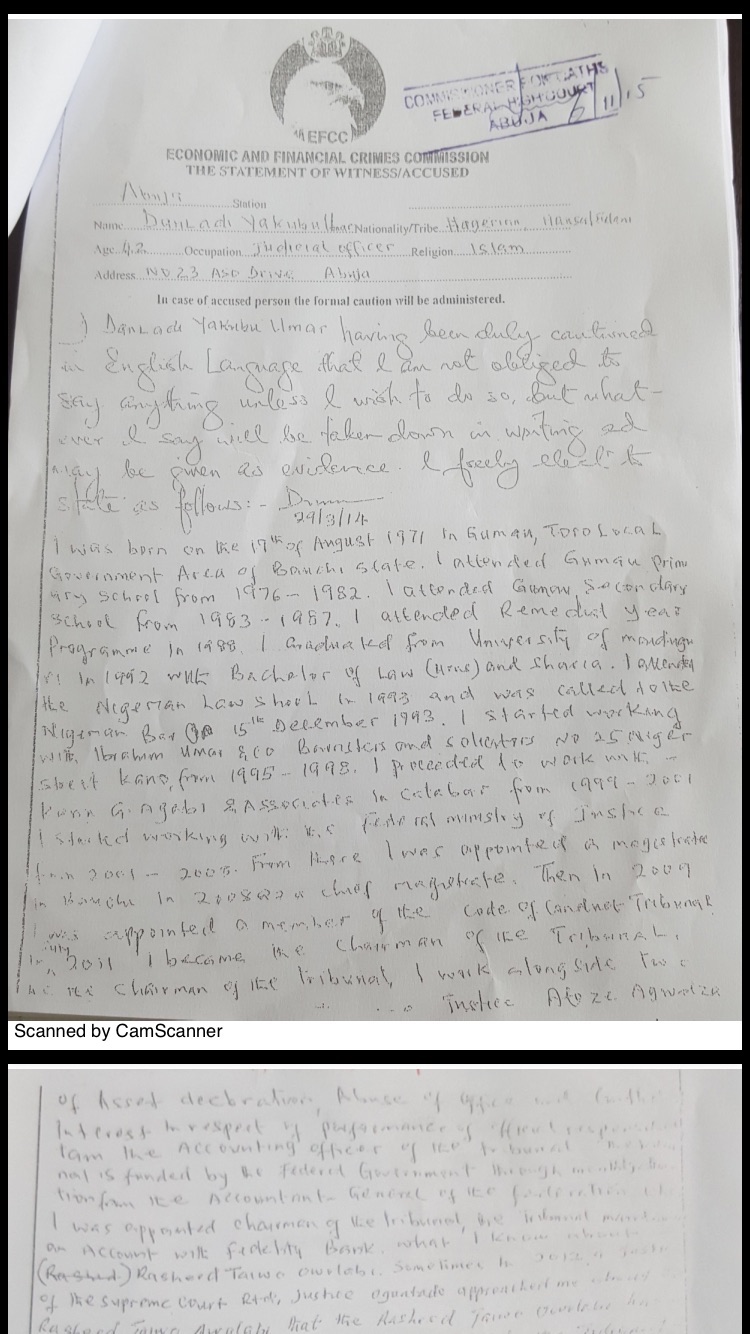 EFCC
COMMISSIONER FOR OATHS
FEDERAL HIGH COURT
ABUJA 6/11/15
ECONOMIC AND FINANCIAL CRIMES COMMISSION
THE STATEMENT OF WITNESS/ACCUSED
Abuja Station
Name DanLadi Yakubu Umar Nationality/Tribe Nigerian, Hausa/Fulani
Age 42 Occupation Judicial officer Religion Islam
Address NO 23 ASO Drive Abuja
In case of accused person the formal caution will be administered.
I DanLadi Yakubu Umar having been duly cautioned
in English Language that I am not obliged to
say anything unless I wish to do so, but what-
ever I say will be taken down in writing and
may be given as evidence. I freely elect to
state as follows:-
29/3/14
I was born on the 17th of August 1971 in Gumau, TORO LOCAL
Government Area of Bauchi state. I attended Gumau Prim
ary school from 1976-1982. I attended Gumau, Secondary
School from 1983-1987. I attended Remedial year
Programme in 1988. I Graduated from University of
in 1992 with Bachelor of Law (Hons) and Sharia. I attended
the Nigerian Law School in 1993 and was called to the
Nigerian Bar 15th December 1993. I started working
with Ibrahim Umar & co Barristers and solicitors NO 25 Niger
street Kano, from 1995-1998. I proceeded to work with
Kanu G. Agabi & Associates in Calabar from 1999-2001
I started working with the Federal ministry of Justice
from 2001- From there I was appointed a magistrate
in Bauchi in chief magistrate. Then in 2009
I was appointed a member of the Code of Conduct Tribunal
in July 2011 I became the Chairman of the Tribunal.
as the Chairman of the Tribunal, I work alongside two
Justice Atoze Agwadza
Scanned by CamScanner
of Asset declaration, Abuse of office and
Interest in respect of performance of official
I am the Accounting officer of the tribunal
nal is funded by the Federal Government through monthly
tion from the Accountant-General of the federation
I was appointed chairman of the tribunal, the tribunal
an Account with Fidelity Bank. what I know about
(Rasheed) Rasheed Taiwo Owolabi. Sometimes in 2012 a Justice
of the supreme court Rtd, Justice Oguntade approached me
Rasheed Taiwo Owolabi that the Rasheed Taiwo Owolabi